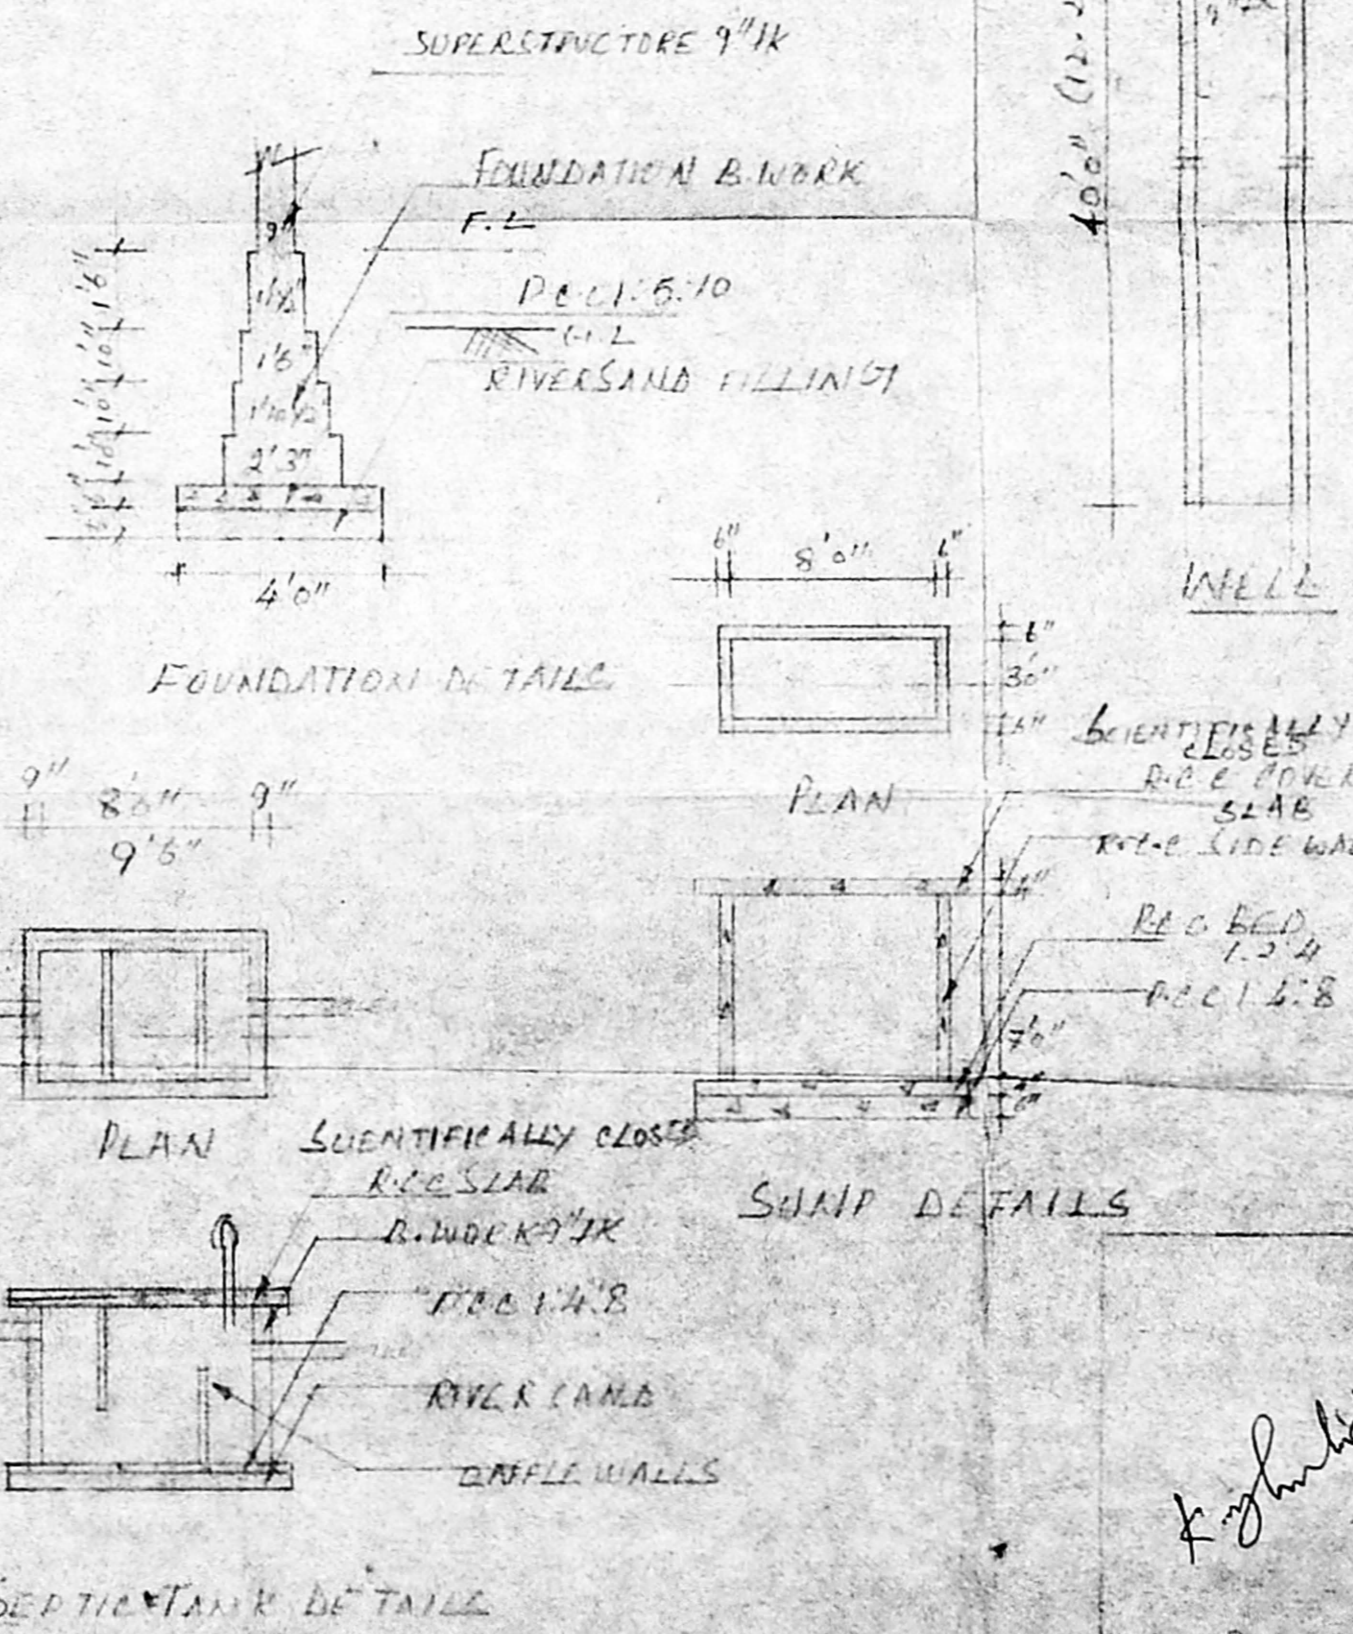 SUPERSTRUCTORE 9"TK
FOUNDATION B.WORK
F.L
P.C.C 1:5:10
G.L
RIVERSAND FILLING
9"
1'1½"
1'6"
1'10½"
2'3"
1'6"
10"
10"
10"
4'0"
FOUNDATION DETAILS
40'0" (12.
WELL
6" 8'0" 6"
6"
3'0"
6"
PLAN
SCIENTIFICALLY
CLOSED
R.C.C COVER
SLAB
R.C.C SIDE
4"
R.C.C BED
1:2:4
P.C.C 1:4:8
7'0"
6"
SUMP DETAILS
9" 8'0" 9"
9'6"
PLAN
SCIENTIFICALLY CLOSED
R.C.C SLAB
B.WORK 9"TK
P.C.C 1:4:8
RIVER SAND
BAFFLE WALLS
SEPTIC TANK DETAILS